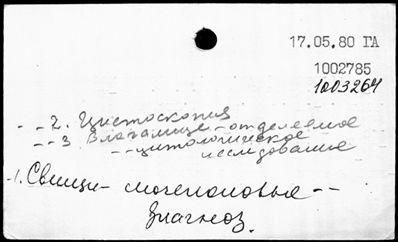 17.05.80 ГА
1002785
1003264
--2. Цистоскопия
--3. Влагалище - отделяемое
-- цитологическое
исследование
-1. Свищи - мочеполовые --
диагноз.